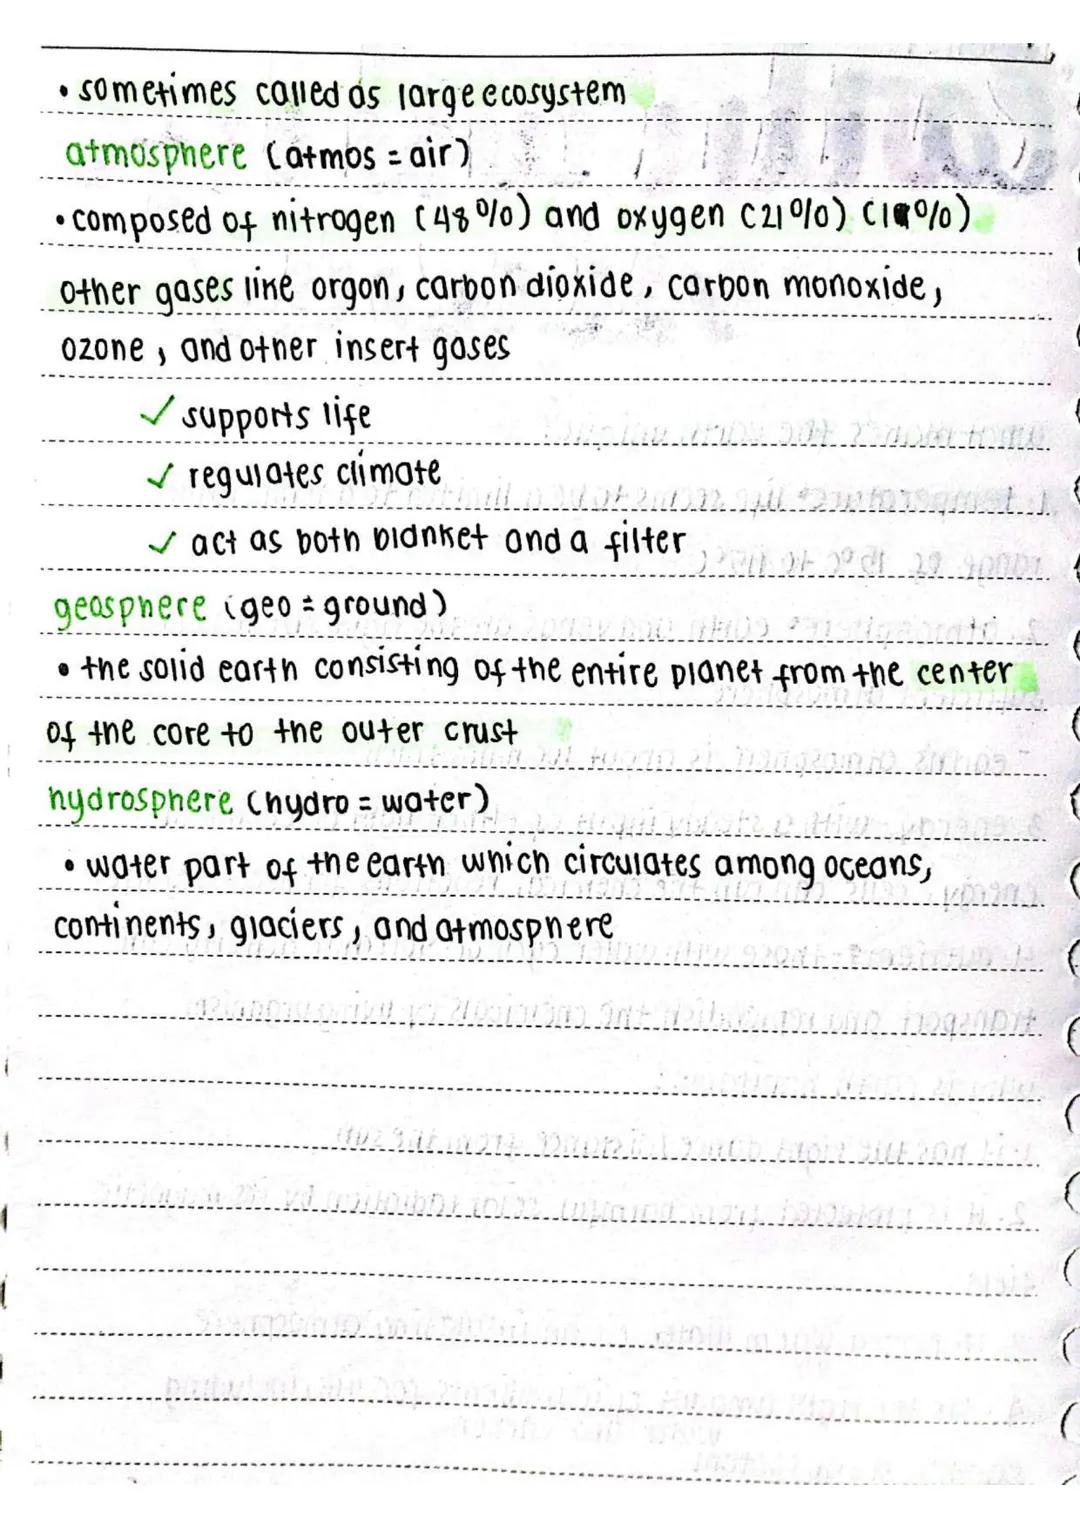 • sometimes called as large ecosystem
atmosphere (atmos = air)
• composed of nitrogen (48%) and oxygen (21%) (1%)
other gases like orgon, carbon dioxide, carbon monoxide,
ozone, and other insert gases
✓ supports life
✓ regulates climate
✓ act as both blanket and a filter
geosphere (geo = ground)
• the solid earth consisting of the entire planet from the center
of the core to the outer crust
hydrosphere (hydro = water)
• water part of the earth which circulates among oceans,
continents, glaciers, and atmosphere